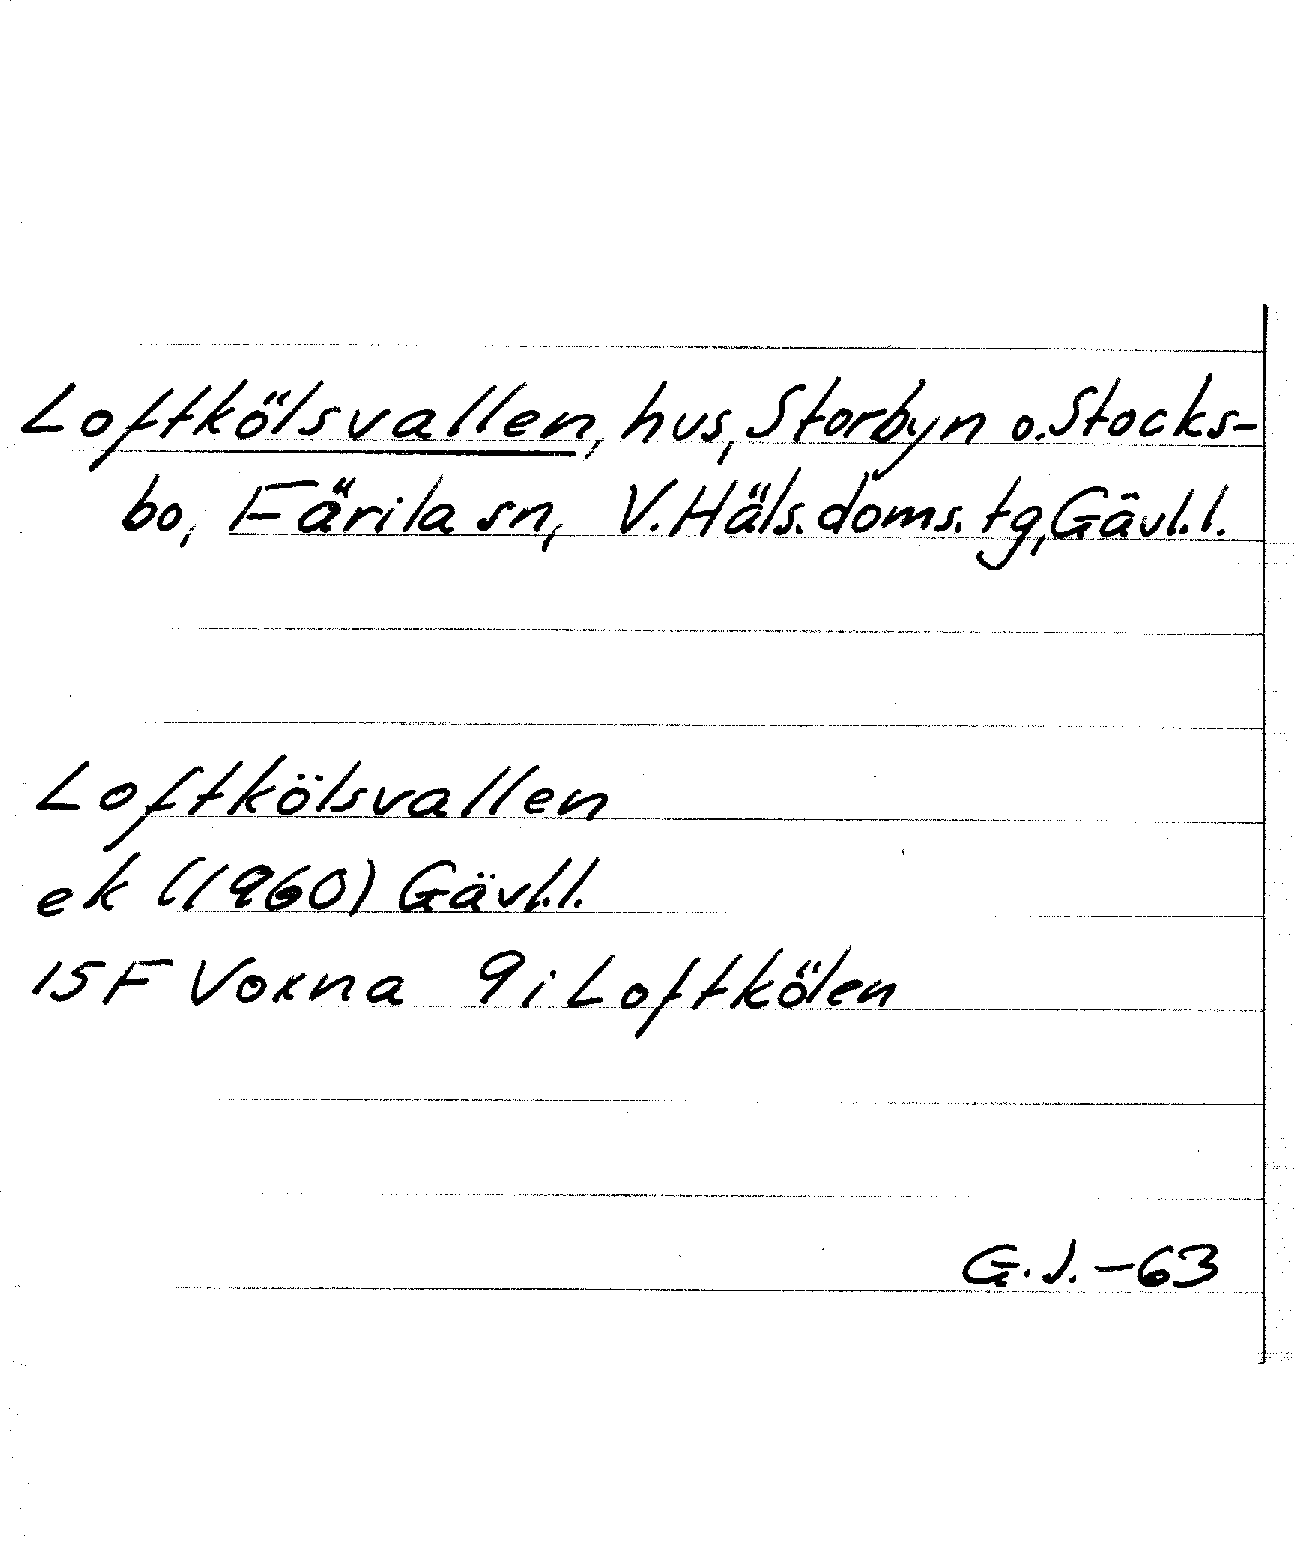 Loftkölsvallen, hus, Storbyn o. Stocks-
bo, Färila sn, V. Häls. doms. tg, Gävl. l.
Loftkölsvallen
ek (1960) Gävl. l.
15F Voxna 9i Loftkölen
G. J. -63